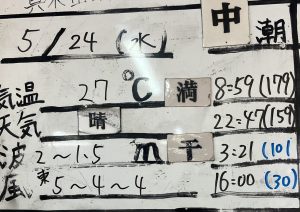 中潮
5/24(水)
気温 27℃ 満 8:59(179)
天気 晴 22:47(159
波 2~1.5m 干 3:21(101
風 東5~4~4 16:00(30)